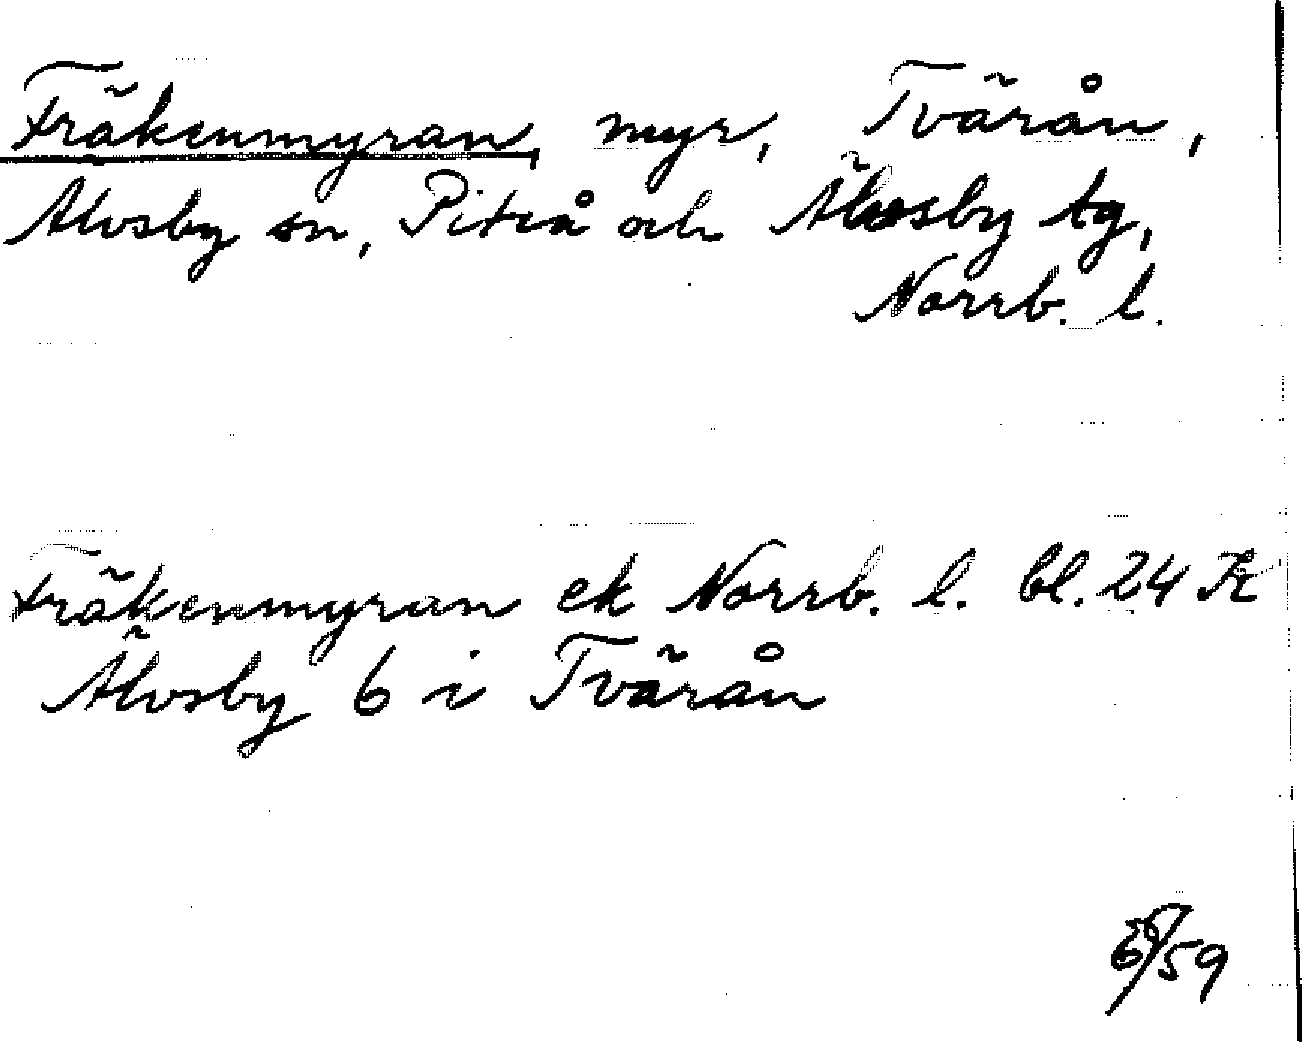 Fräkenmyran, myr, Tvärån,
Älvsby sn, Piteå och Älvsby tg,
Norrb. l.
Fräkenmyran ek Norrb. l. bl. 24 K
Älvsby 6 i Tvärån
/59